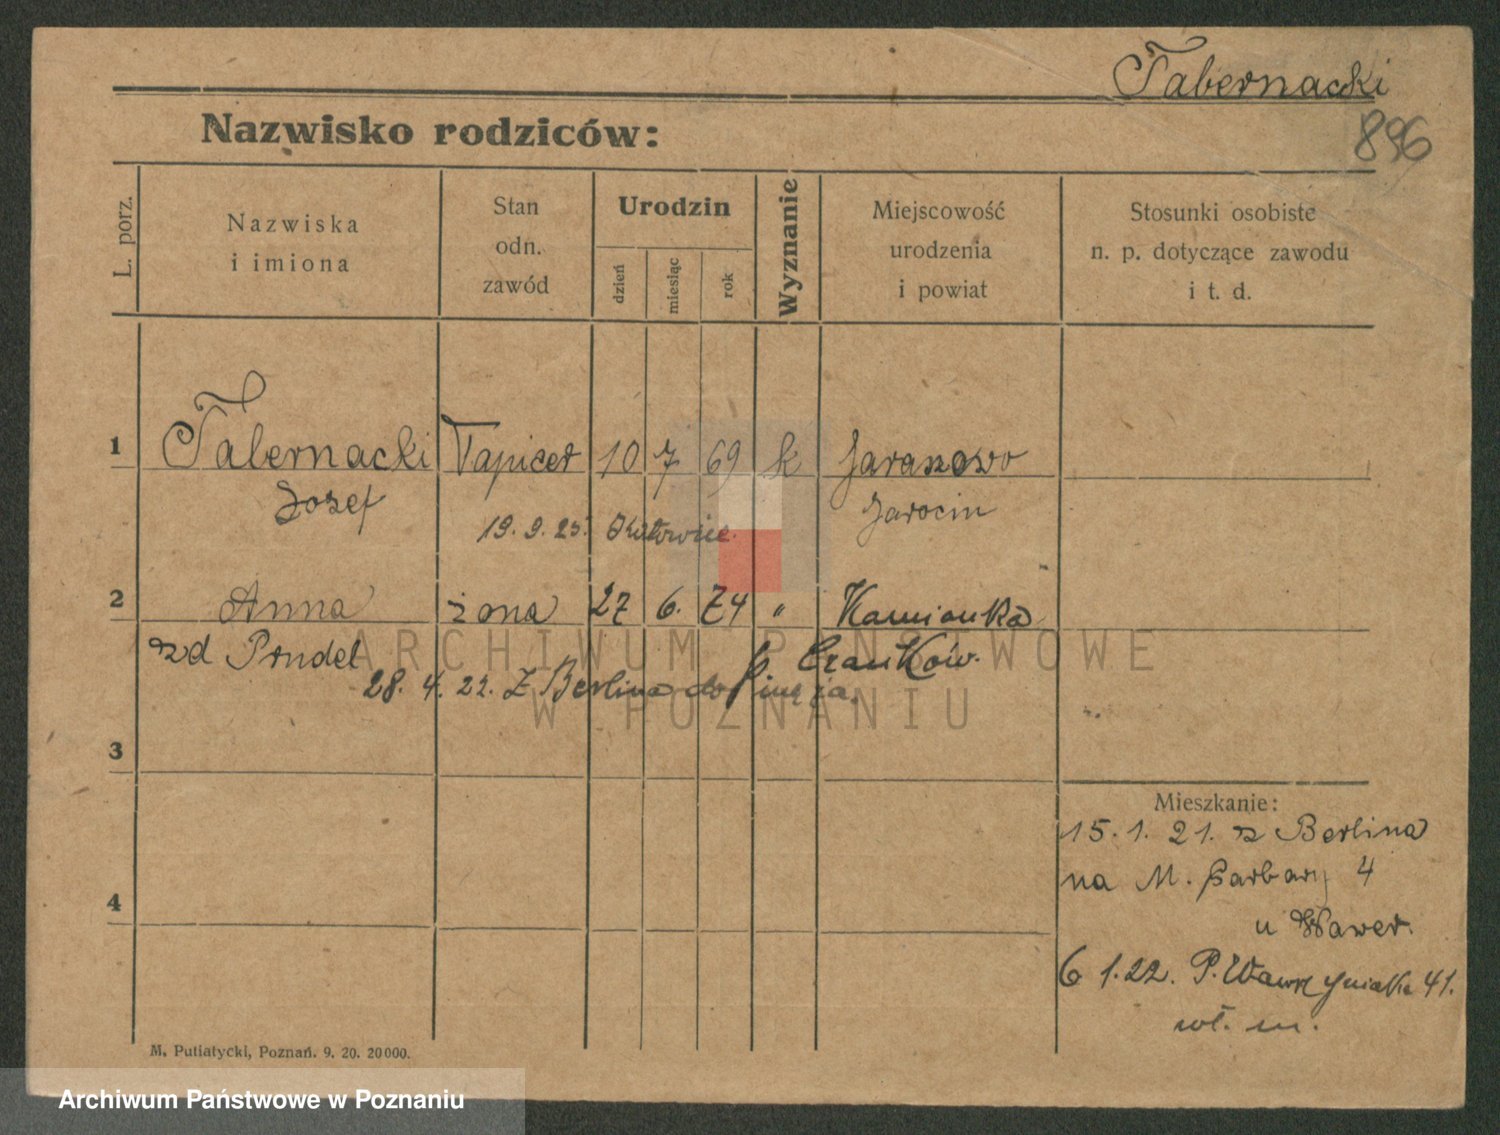 Tabernacki
896
Nazwisko rodziców:
L. porz.
Nazwiska
i imiona
Stan
odn.
zawód
Urodzin
dzień
miesiąc
rok
Wyznanie
Miejscowość
urodzenia
i powiat
Stosunki osobiste
n. p. dotyczące zawodu
i t. d.
1 Tabernacki Tapicer 10 7 69 k Jaraszewo
Jozef Jarocin
19. 9. 25. Katowice.
2 Anna żona 27 6. 74 " Kamionka
zd Prudel Czarnków.
28. 4. 22. Z Berlina do
ARCHIWUM PAŃSTWOWE
W POZNANIU
3
4
Mieszkanie:
15. 1. 21. z Berlina
na M. Garbary 4
u Wawer.
6 1. 22. P. Wawrzyniaka 41.
wł. m.
M. Putiatycki, Poznań. 9. 20. 20000.
Archiwum Państwowe w Poznaniu